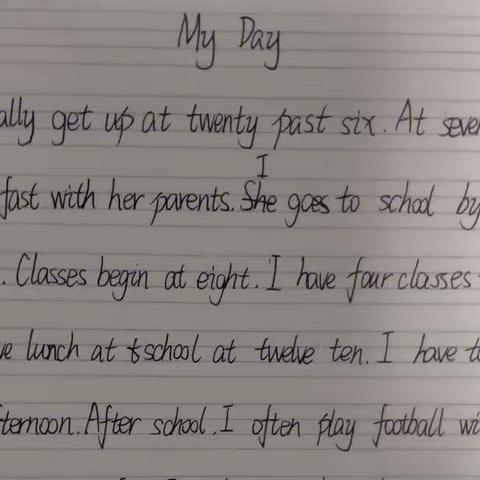 My Day
ally get up at twenty past six. At seve
fast with her parents. I goes to school by
. Classes begin at eight. I have four classes
ve lunch at school at twelve ten. I have t
fternoon. After school, I often play football wi